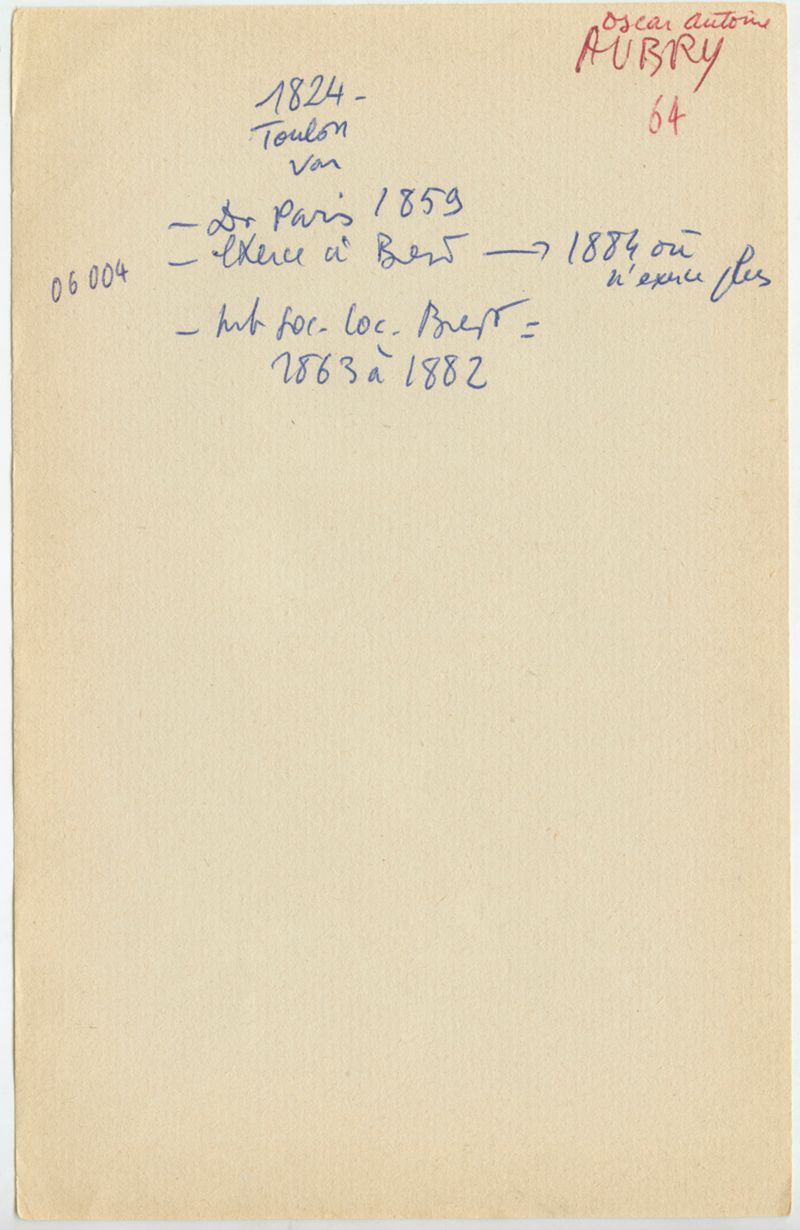 Oscar Antoine
AUBRY
64
1824 -
Toulon
Var
- Dr Paris 1859
- exerce à Brest → 1884 où
n'exerce plus
06 004
- mb Soc. loc. Brest =
1863 à 1882